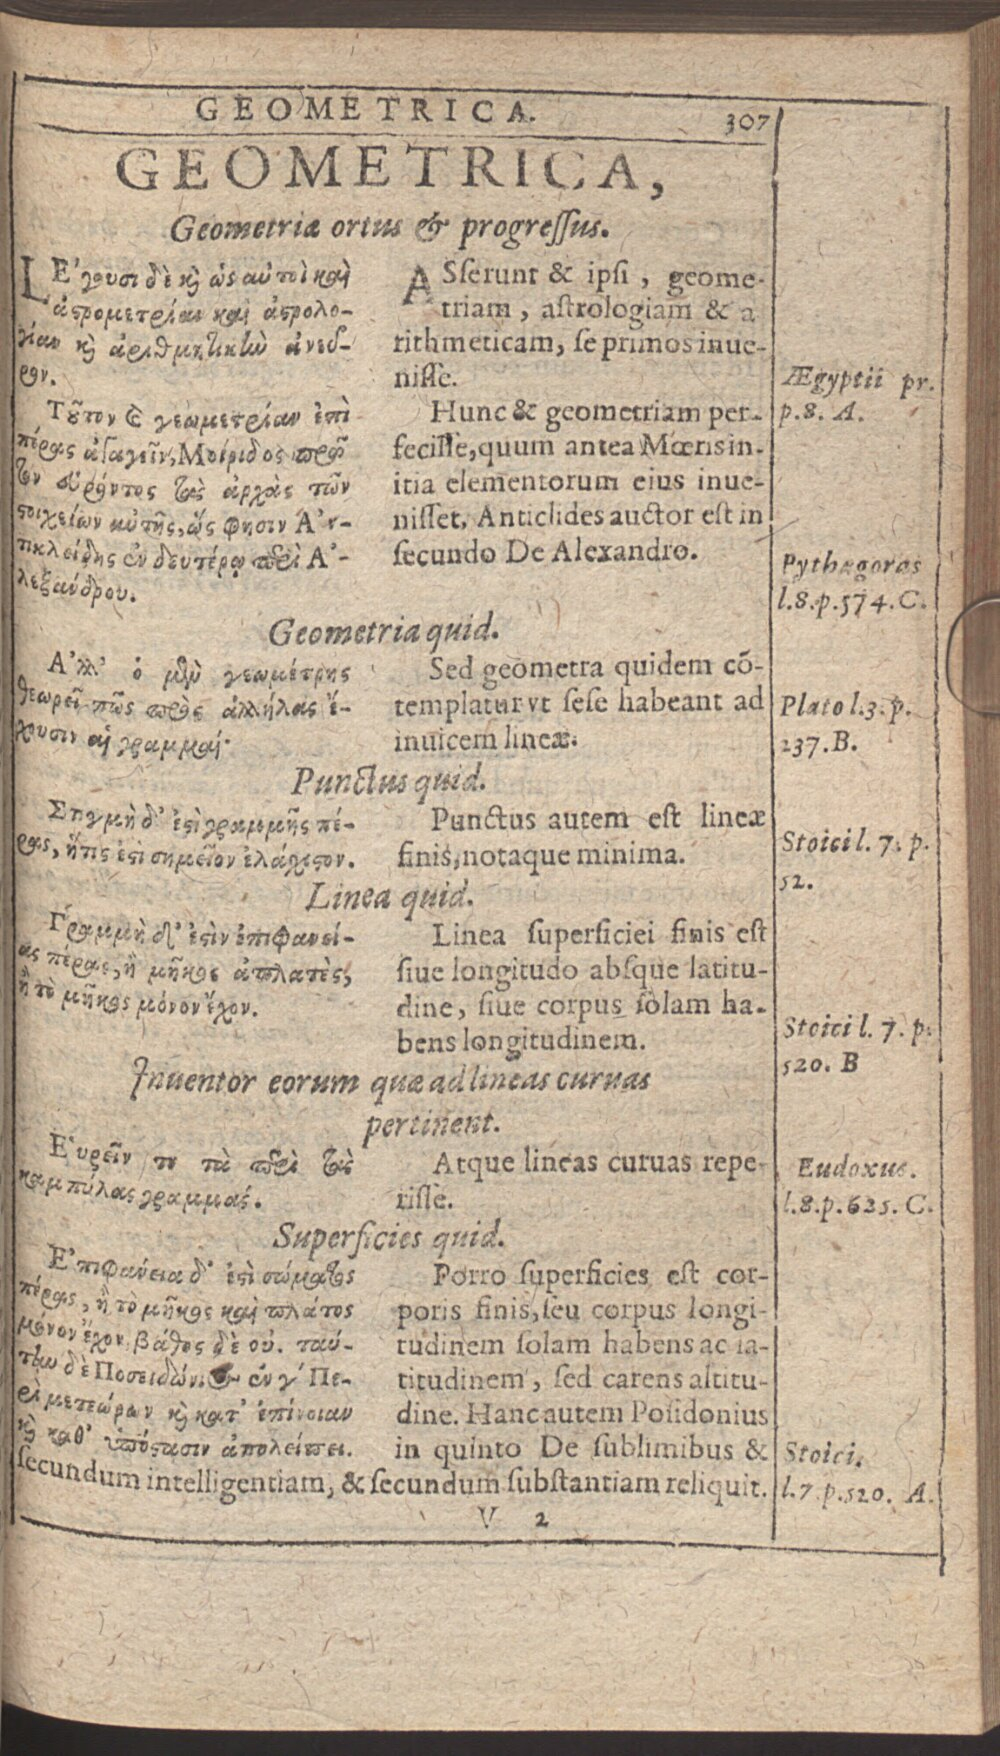 GEOMETRICA.
307
GEOMETRICA,
Geometriæ ortus & progreſſus.
ΛΕ'γουσι δὲ κỳ ὡς αὐτοὶ καὶ
ἀϛρομετρίαν καὶ ἀϛρολο-
γίαν κỳ ἀριθμητικὴν ἀνεῦ-
ρον.
Τοῦτον Ⓒ γεωμετρίαν ἐπὶ
πέρας ἀγαγεῖν, Μοίριδος πρῶ
τον εὑρόντος τὰς ἀρχὰς τῶν
ϛοιχείων αὐτῆς, ὥς φησιν Ἀν-
τικλείδης ἐν δευτέρῳ περὶ Ἀ-
λεξάνδρου.
ASſerunt & ipſi, geome-
triam, aſtrologiam & a
rithmeticam, ſe primos inue-
niſſe.
Hunc & geometriam per-
feciſſe, quum antea Mœris in-
itia elementorum eius inue-
niſſet, Anticlides auctor eſt in
ſecundo De Alexandro.
Ægyptii pr.
p.8. A.
Pythagoras
l.8.p.574.C.
Geometria quid.
Ἀλλ' ὁ μὲν γεωμέτρης
θεωρεῖ πῶς πρὸς ἀλλήλας ἔ-
χουσιν αἱ γραμμαί·
Sed geometra quidem cō-
templatur vt ſeſe habeant ad
inuicem lineæ.
Plato l.3.p.
237.B.
Punctus quid.
Στιγμὴ δ' ἐϛὶ γραμμῆς πέ-
ρας, ἥτις ἐϛὶ σημεῖον ἐλάχιϛον.
Punctus autem eſt lineæ
finis, notaque minima.
Stoici l. 7. p.
52.
Linea quid.
Γραμμὴ δ' ἐϛὶν ἐπιφανεί-
ας πέρας, ἢ μῆκος ἀπλατὲς,
ἢ τὸ μῆκος μόνον ἔχον.
Linea ſuperficiei finis eſt
ſiue longitudo abſque latitu-
dine, ſiue corpus ſolam ha-
bens longitudinem.
Stoici l. 7. p.
520. B
Inuentor eorum quæ ad lineas curuas
pertinent.
Εὑρεῖν τε τὰ περὶ τὰς
καμπύλας γραμμάς.
Atque lineas curuas repe-
riſſe.
Eudoxus.
l.8.p.625. C.
Superficies quid.
Ἐπιφάνεια δ' ἐϛὶ σώματος
πέρας, ἢ τὸ μῆκος καὶ πλάτος
μόνον ἔχον, βάθος δὲ οὐ. ταύ-
την δὲ Ποσειδώνιος ἐν γ' Πε-
ρὶ μετεώρων κỳ κατ' ἐπίνοιαν
κỳ καθ' ὑπόϛασιν ἀπολείπει.
Porro ſuperficies eſt cor-
poris finis, ſeu corpus longi-
tudinem ſolam habens ac la-
titudinem, ſed carens altitu-
dine. Hanc autem Poſidonius
in quinto De ſublimibus &
ſecundum intelligentiam, & ſecundum ſubſtantiam reliquit.
Stoici.
l.7.p.520. A.
V 2